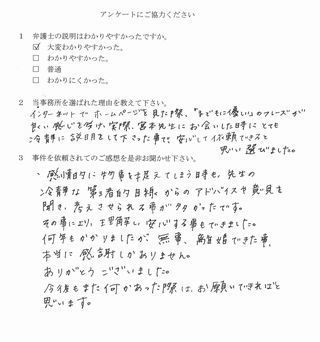 アンケートにご協力ください
1 弁護士の説明はわかりやすかったですか。
☑ 大変わかりやすかった。
□ わかりやすかった。
□ 普通
□ わかりにくかった。
2 当事務所を選ばれた理由を教えて下さい。
インターネットでホームページを見た際、"子どもに優しい"のフレーズが
良い感じを受け、実際、宮本先生にお会いした時にとても
冷静に説明をして下さった事で、安心して依頼できると
思い選びました。
3 事件を依頼されてのご感想を是非お聞かせ下さい。
・感情的に物事を捉えてしまう時も、先生の
冷静な第三者的目線からのアドバイスや意見を
聞き、考えさせられる事が多かったです。
その事により、理解し、安心する事もできました。
何年もかかりましたが、無事、離婚できた事、
本当に感謝しかありません。
ありがとうございました。
今後もまた何かあった際は、お願いできればと
思います。